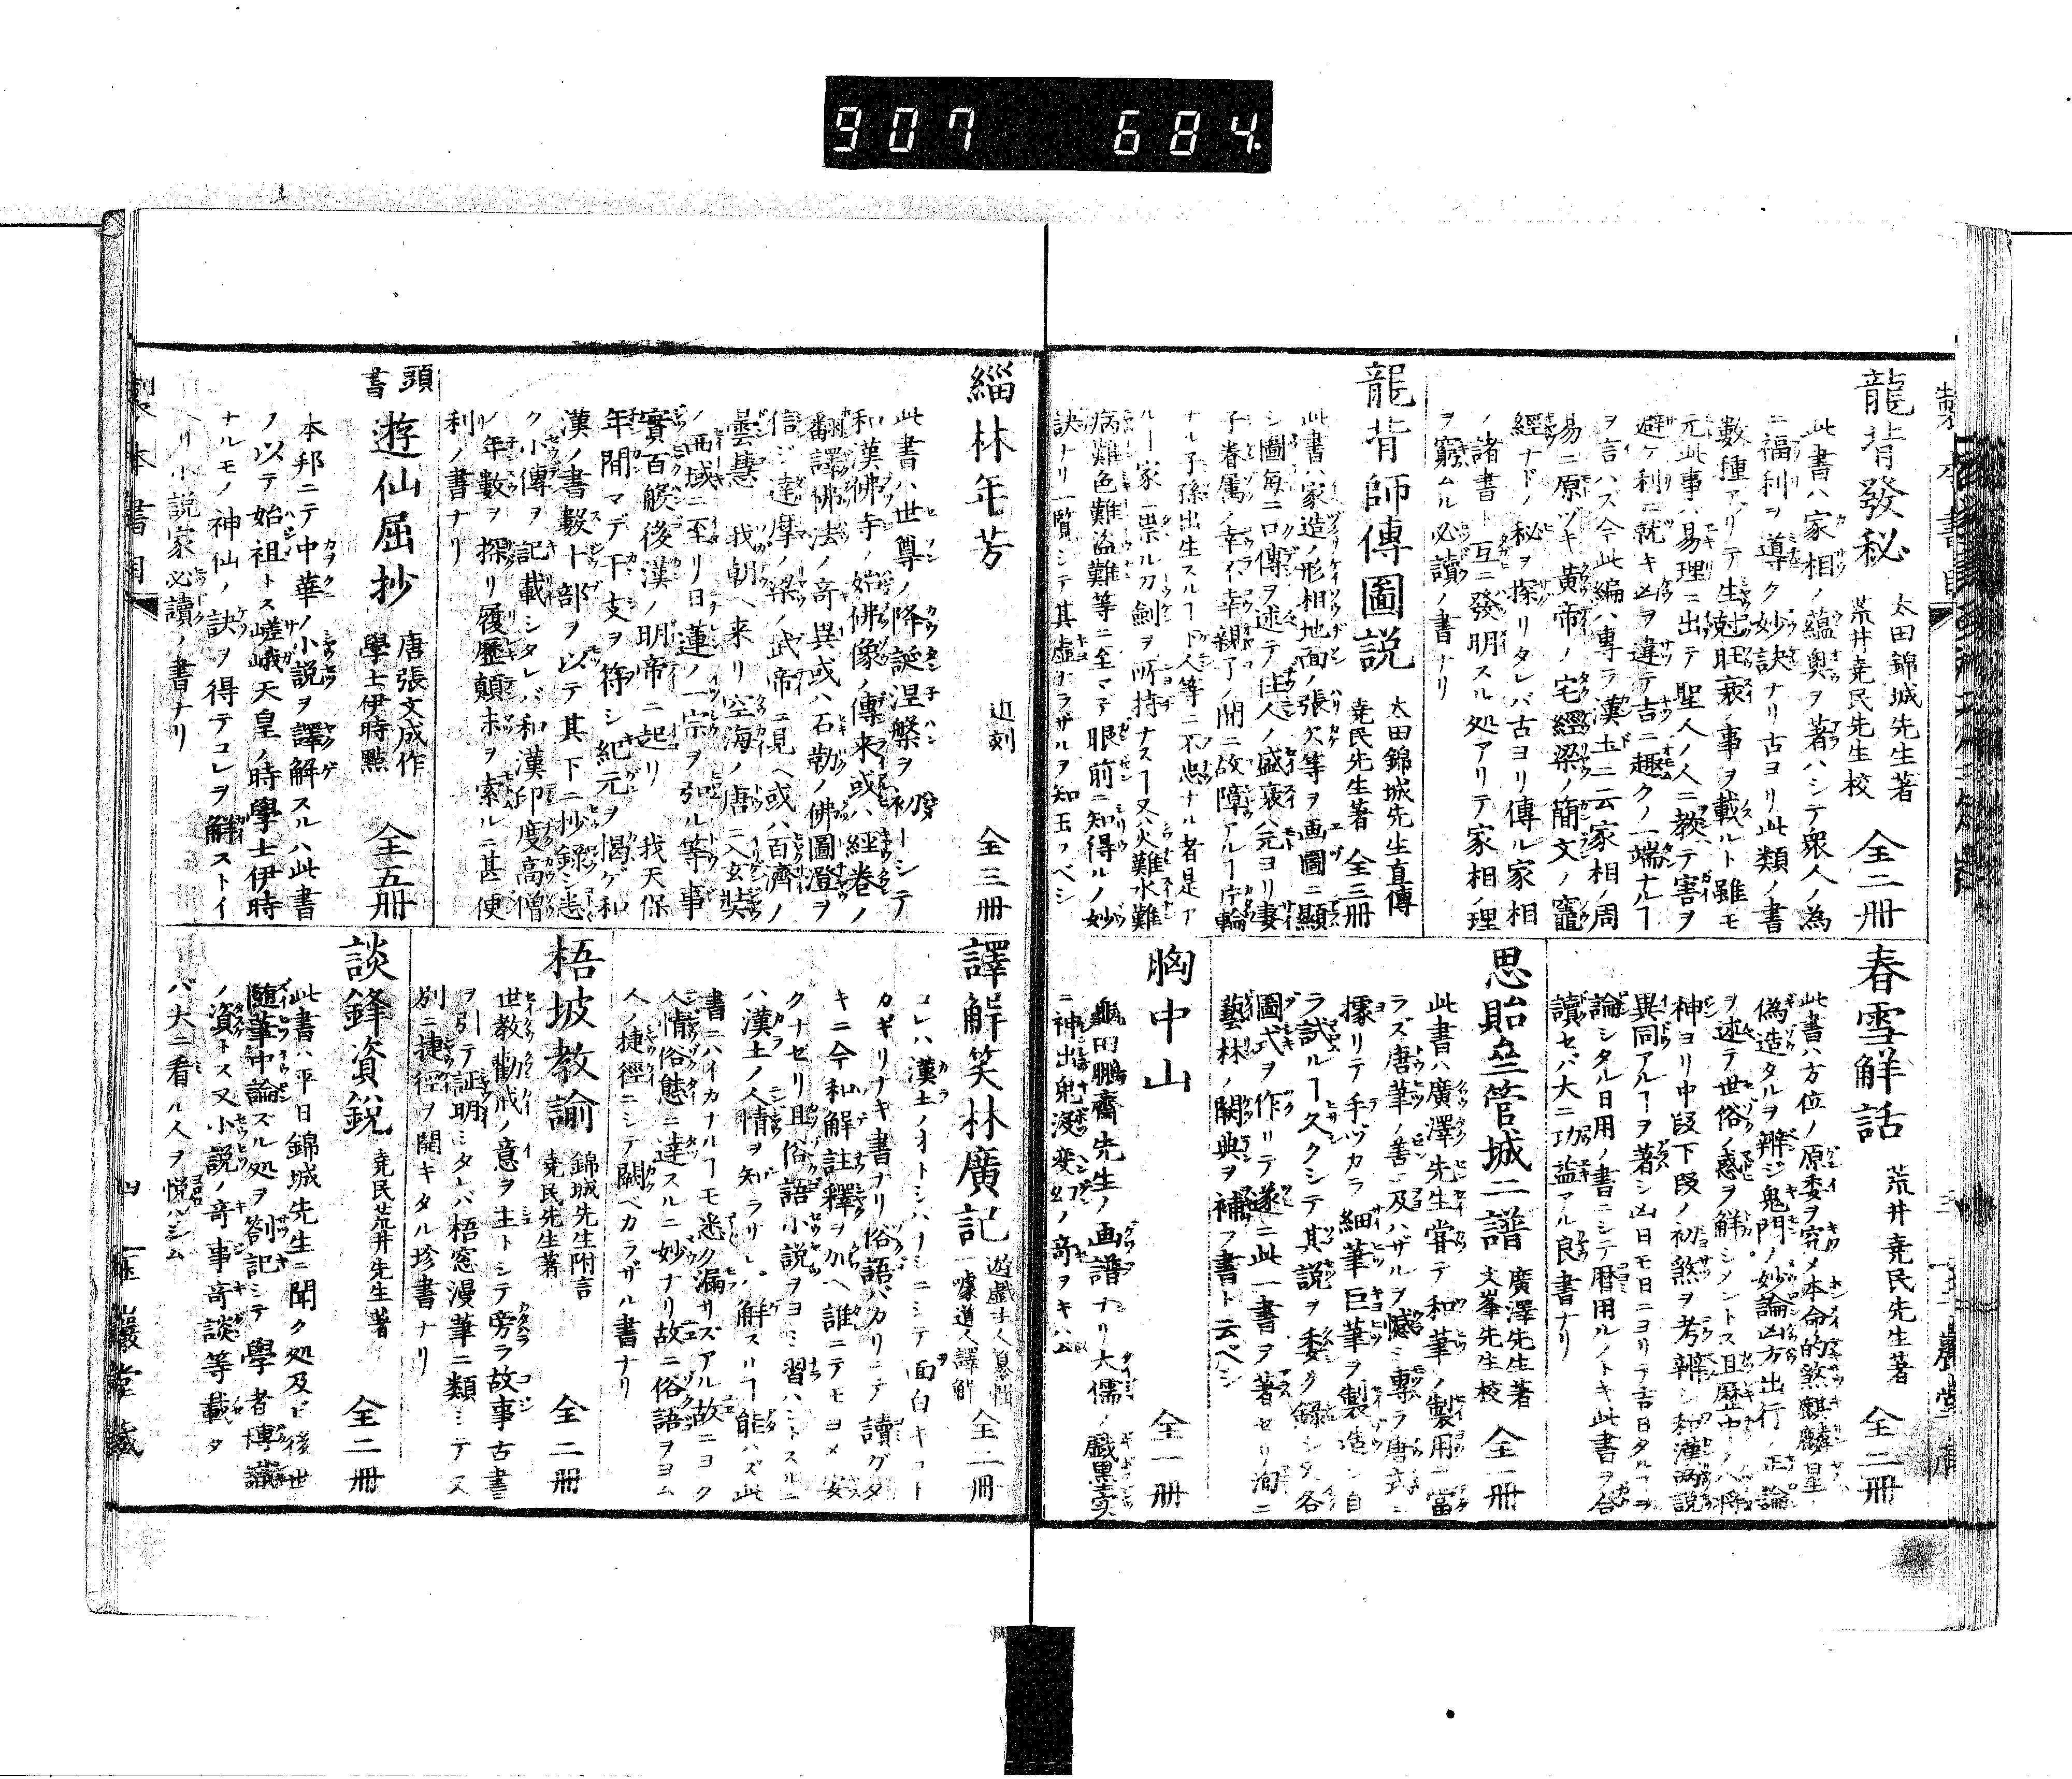 907 684.
製本書目
龍背發秘 太田錦城先生著 荒井堯民先生校 全二冊
此書ハ家相ノ蘊奥ヲ著ハシテ衆人ノ為
ニ福利ヲ導ク妙訣ナリ古ヨリ此類ノ書
數種アリテ生尅旺衰ノ事ヲ載ルト雖モ
元此事ハ易理ニ出テ聖人ノ人ニ教ヘテ害ヲ
避ケ利ニ就キ凶ヲ違テ吉ニ趣クノ一端ナルヿ
ヲ言ハズ今此編ハ専ラ漢土ニ云家相ノ周
易ニ原ヅキ黄帝ノ宅經梁ノ簡文ノ竈
經ナドノ秘ヲ探リタレバ古ヨリ傳ル家相
ノ諸書ト互ニ發明スル処アリテ家相ノ理
ヲ窮ムル必讀ノ書ナリ
龍背師傳圖説 太田錦城先生直傳 堯民先生著 全三冊
此書ハ家造ノ形相地面ノ張欠等ヲ画圖ニ顯
シ圖毎ニ口傳ヲ述テ住人ノ盛衰ハ元ヨリ妻
子眷属ノ幸不幸親子ノ間ニ故障アルヿ片輪
ナル子孫出生スルヿ下人等ニ不忠ナル者是ア
ルヿ家ニ祟ル刀劍ヲ所持ナスヿ又火難水難
病難色難盗難等ニ至マデ眼前ニ知得ルノ妙
訣ナリ一覧シテ其虚ナラザルヲ知玉フベシ
春雪解話 荒井堯民先生著 全二冊
此書ハ方位ノ原委ヲ究メ本命的煞麒麟星ノ
偽造タルヲ辨ジ鬼門ノ妙論凶方出行ノ正論
ヲ述テ世俗ノ惑ヲ解シメントス且歴中ノ八將
神ヨリ中段下段ノ初煞ヲ考辨シ和漢両説
異同アルヿヲ著シ凶日モ日ニヨリテ吉日タルヿヲ
論シタル日用ノ書ニシテ暦用ルノトキ此書ヲ合
讀セバ大ニ功益アル良書ナリ
思貽壘管城二譜 廣澤先生著 文峯先生校 全一冊
此書ハ廣澤先生嘗テ和筆ノ製用ニ當
ラズ唐筆ノ善ニ及ハザルヲ憾ミ専ラ唐式ニ
據リテ手ヅカラ細筆巨筆ヲ製造シ自
ラ試ルヿ久クシテ其説ヲ委ク録シタ各
圖式ヲ作リテ遂ニ此一書ヲ著セリ洵ニ
藝林ノ闕典ヲ補フ書ト云ベシ
胸中山 全一冊
龜田鵬齋先生ノ画譜ナリ大儒ノ戯墨実
ニ神出鬼没変幻ノ奇ヲキハム
緇林年芳 近刻 全三冊
此書ハ世尊ノ降誕涅槃ヲ初トシテ
和漢佛寺ノ始佛像ノ傳来或ハ經巻ノ
翻譯佛法ノ奇異或ハ石勒ノ佛圖澄ヲ
信ジ達摩ノ梁ノ武帝ニ見ヘ或ハ百濟ノ
曇慧 我朝ヘ来リ空海ノ唐ニ入玄奘
ノ西域ニ至リ日蓮ノ一宗ヲ弘ル等事
實百餘後漢ノ明帝ニ起リ 我天保
年間マデ干支ヲ符シ紀元ヲ掲ゲ和
漢ノ書數十部ヲ以テ其下ニ抄録シ悉
ク小傳ヲ記載シタレバ和漢印度高僧
ノ年數ヲ探リ履歴顛末ヲ索ルニ甚便
利ノ書ナリ
頭書 遊仙屈抄 唐張文成作 學士伊時點 全五冊
本邦ニテ中華ノ小説ヲ譯解スルハ此書
ノ以テ始祖トス嵯峨天皇ノ時學士伊時
ナルモノ神仙ノ訣ヲ得テコレヲ解ストイ
ヘリ小説家必讀ノ書ナリ
譯解笑林廣記 遊戯主人纂輯 一噱道人譯解 全二冊
コレハ漢土ノオトシバナシニシテ面白キコト
カギリナキ書ナリ俗語バカリニテ讀グタ
キニ今和解註釋ヲ加ヘ誰ニテモヨメ安
クナセリ且俗語小説ヲヨミ習ハントスルニ
ハ漢土ノ人情ヲ知ラザレバ解スルヿ能ハズ此
書ニハイカナルヿモ悉ク漏サズアル故ニヨク
人情俗態ニ達スルニ妙ナリ故ニ俗語ヲヨム
人ノ捷徑ニシテ闕ベカラザル書ナリ
梧坡教諭 錦城先生附言 堯民先生著 全二冊
世教勸戒ノ意ヲ主トシテ旁ラ故事古書
ヲ引テ証明シタレバ梧窓漫筆ニ類シテス
別ニ捷徑ヲ開キタル珍書ナリ
談鋒資鋭 堯民荒井先生著 全二冊
此書ハ平日錦城先生ニ聞ク処及ビ後世
随筆中論ズル処ヲ劄記シテ學者博識
ノ資トス又小説ノ奇事奇談等載タ
バ大ニ看ル人ヲ悦バシム
製本書目 四 玉巖堂藏